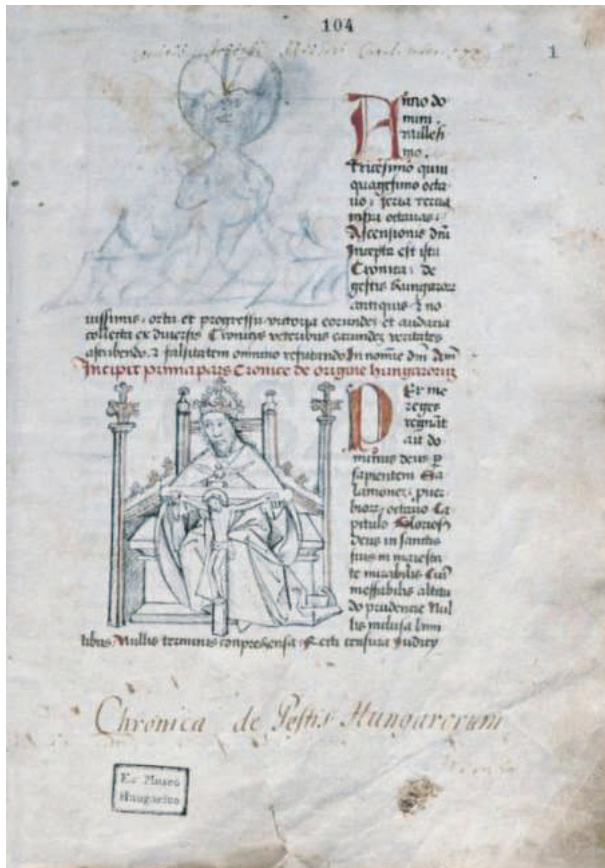 104
1
Anno do
mini
millesi
mo
Tricesimo quin
quagesimo octa
uo, feria tercia
infra octauas
Ascensionis dnī
Incepta est ista
Cronica de
gestis hungaroꝝ
antiquis ⁊ no
uissimis, ortu et progressu victoria eorundeꝫ et audatia
collecta ex diuersis Cronicis veteribus earundeꝫ veritates
ascribendo, ⁊ falsitatem omnino refutando In nomīe dnī Amē
Incipit prima pars Cronice de origine hungaroruꝫ
PEr me
reges
regnāt
ait do
minus deus ꝑ
sapientem Sa
lamoneꝫ, puer
bioꝝ, octauo Ca
pitulo Gloriosꝰ
deus in sanctis
suis in maiesta
te mirabilis Cuiꝰ
ineffabilis altitu
do prudencie Nul
lis inclusa limi
tibus, Nullis terminis conprehensa, Recti censura Iudicij
Chronica de Gestis Hungarorum
Ex Museo
Hungarico